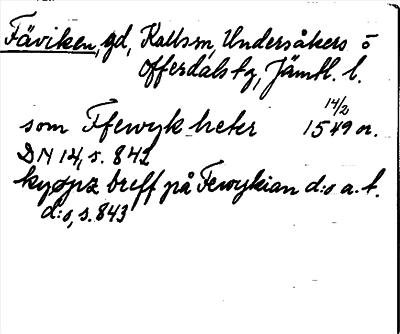 Fäviken, gd, Kallsm, Undersåkers o
Offerdals tg, Jämtl. l.
14/2
som Ffewyk heter 1549 or.
DN 14, s. 842
kyøpz breff på Fewykian d:o a. l.
d:o, s. 843